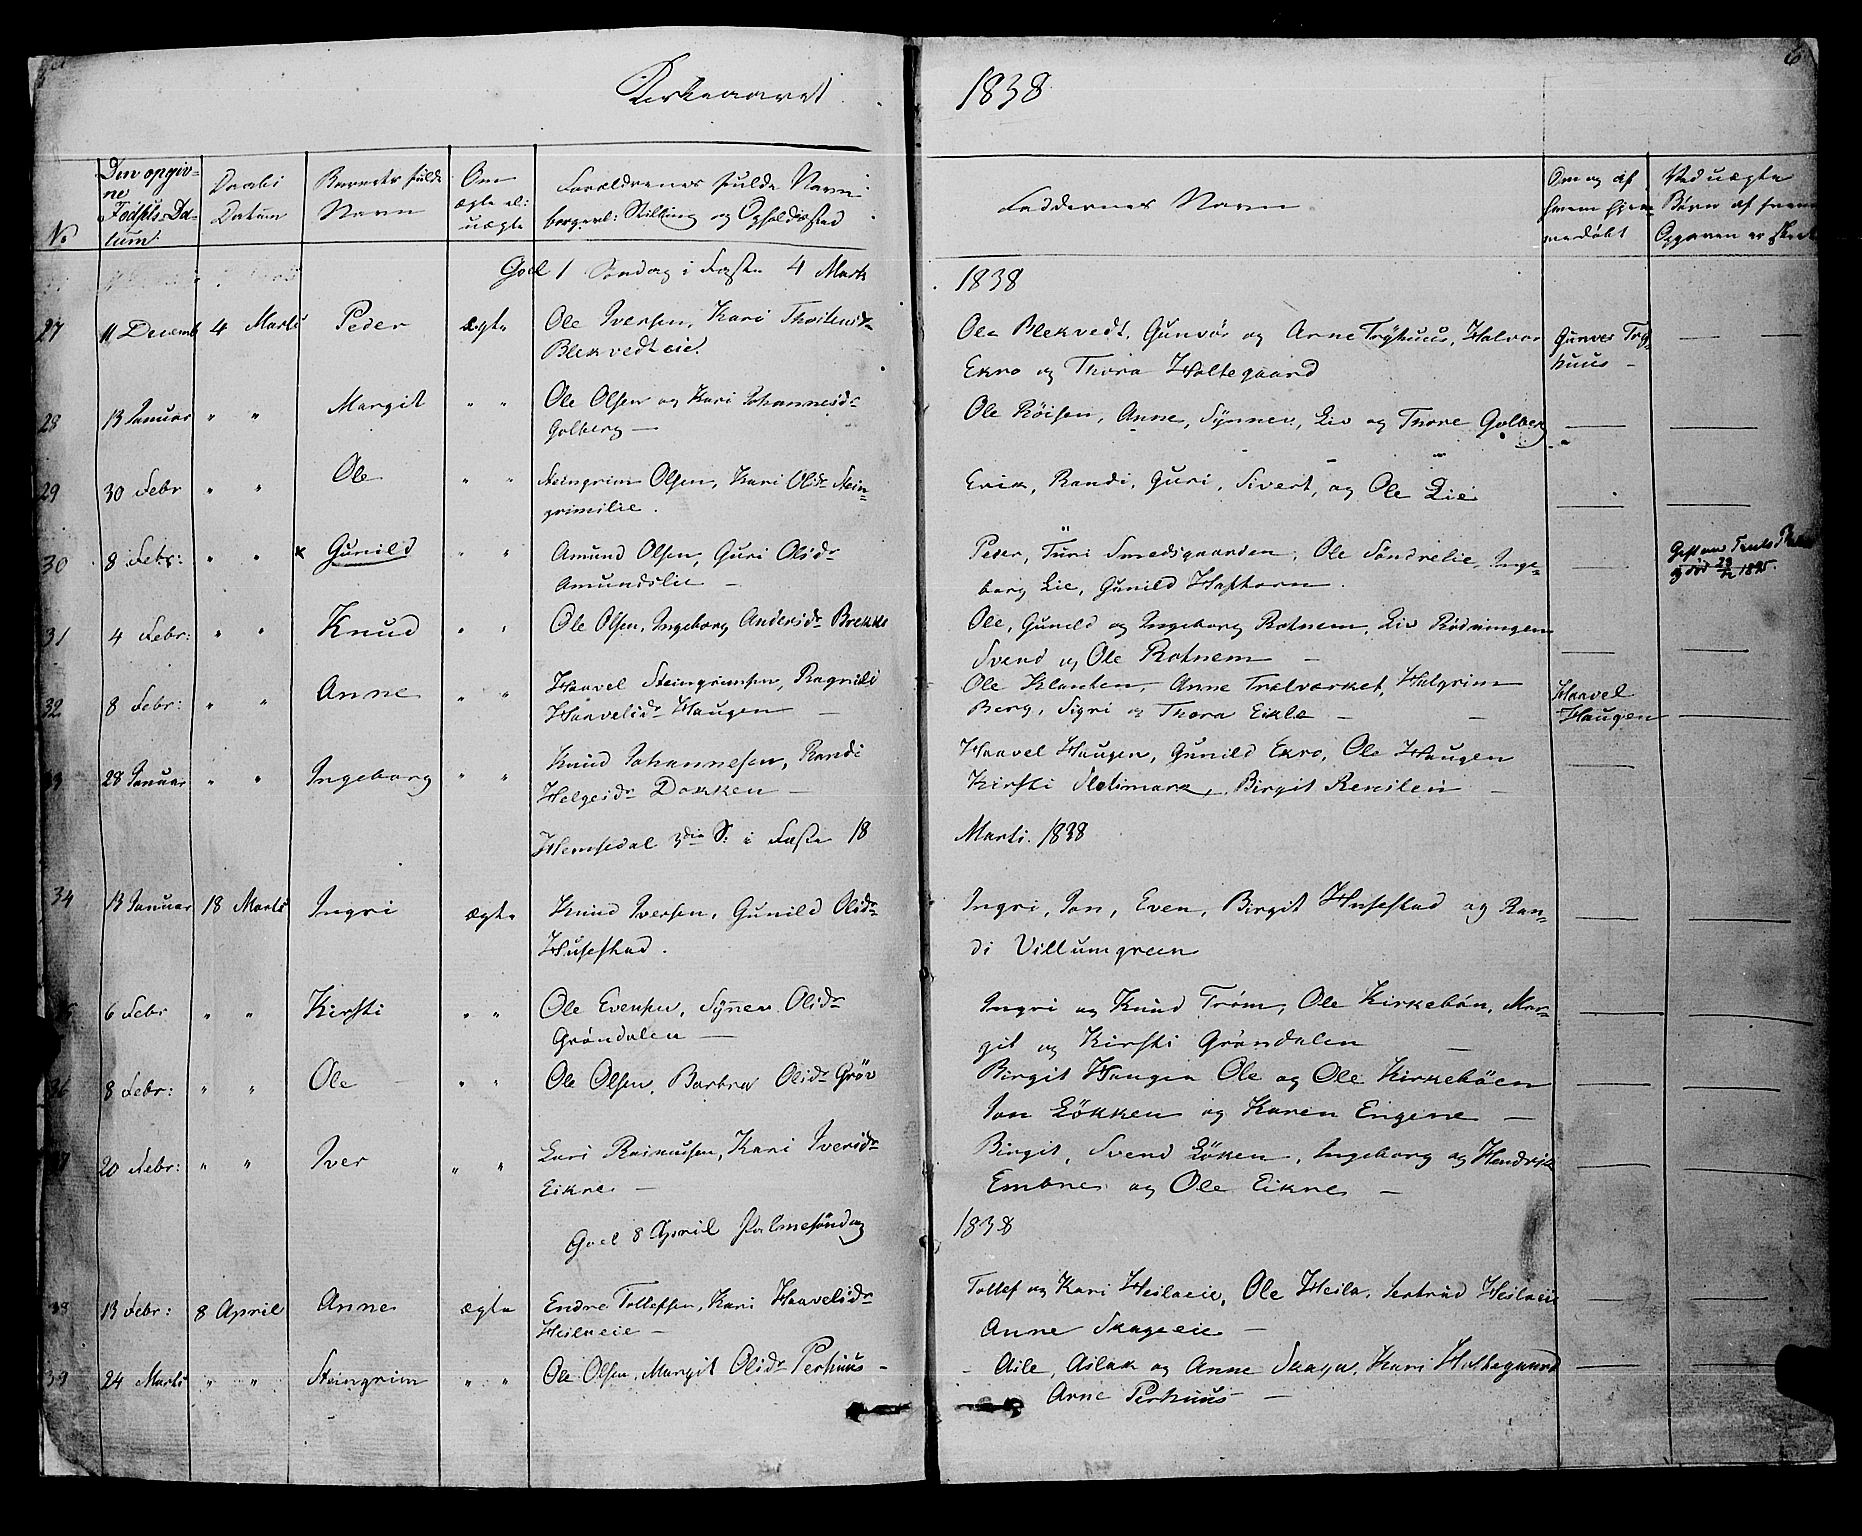 Kirkeaaret 1838
6
No
Den opgiv-
ne
Fødsels-Da-
tum.
Daabs
Datum
Barnets fulde
Navn
Om
ægte el:
uægte
Forældrenes fulde Navn
borgerl: Stilling og Opholdssted
Faddernes Navn
Om og af
hvem hjem-
medøbt
Ved uægte
Børn af hvem
Opgaven er skeet
Goel 1 Søndag i Faste 4 Marts 1838
27 11 Decemb 4 Marts Peder ægte Ole Iversen, Kari Ole Blekvedt, Gunvør og Arne Trøhuus, Halvor Gunvor Trø-
Blekvedteie. Ekro og Thora Holtegaard huus -
28 13 Januar " " Margit " " Ole Olsen og Kari Johannesdr Ole Röisen, Anne, Synnev, Liv og Thore Golberg
Golberg —
29 30 Febr " " Ole " " Steingrim Olsen, Kari Olsdr Stein- Erik, Randi, Guri, Sivert, og Ole Lie
grimslie.
30 8 Febr: " " × Gunild " " Amund Olsen, Guri Olsdr Peder, Turi Smedsgaarden, Ole Söndrelie, Inge- Gift
Amundslie — borg Lie, Gunild Hafthorn. og död 1895.
31 4 Febr: " " Knud " " Ole Olsen, Ingeborg Andersdr Brekke Ole, Gunild og Ingeborg Rotnem, Liv Rødningen
Svend og Ole Rotnem —
32 8 Febr: " " Anne " " Haavel Steingrimsen, Ragnild Ole Klanten, Anne Trælvørket, Halgrim Haavel
Haavelsdr Haugen — Berg, Sigri og Thora Eikle — Haugen
33 28 Januar " " Ingeborg " " Knud Johannesen, Randi Haavel Haugen, Gunild Ekro, Ole Haugen
Helgesdr Dokken — Kirsti Slotimark, Birgit —
Hemsedal 3die S: i Faste 18 Marts. 1838
34 13 Januar 18 Marts Ingri ægte Knud Iversen, Gunild Olsdr Ingri, Jon, Even, Birgit Husestad og Ran-
Husestad. di Villumgreen
35 6 Febr " " Kirsti " " Ole Evensen, Synev Olsdr Ingri og Knud Tröm, Ole Kirkebön, Mar-
Gröndalen — git og Kirsti Gröndalen —
36 8 Febr: " " Ole " " Ole Olsen, Barbra Olsdr Gröv Birgit Haugen Ole og Ole Kirkeböen
Jon Lökken og Karen Engene —
37 20 Febr: " " Iver " " Lars Rasmusen, Kari Iversdr Birgit, Svend Löken, Ingeborg og Hendrik
Eikre — Embre og Ole Eikre —
Goel 8 April Palmesöndag 1838
38 13 Febr: 8 April Anne ægte Endre Tollefsen, Kari Haavelsdr Tollef og Kari Heilaeie, Ole Heila, Gertrud Heilaeie
Heilaeie — Anne Skageeie —
39 24 Marts " " Steingrim " " Ole Olsen, Margit Olsdr Perhuus - Aile, Aslak og Anne Skaga, Kari Holtegaard
Arne Perhuus —